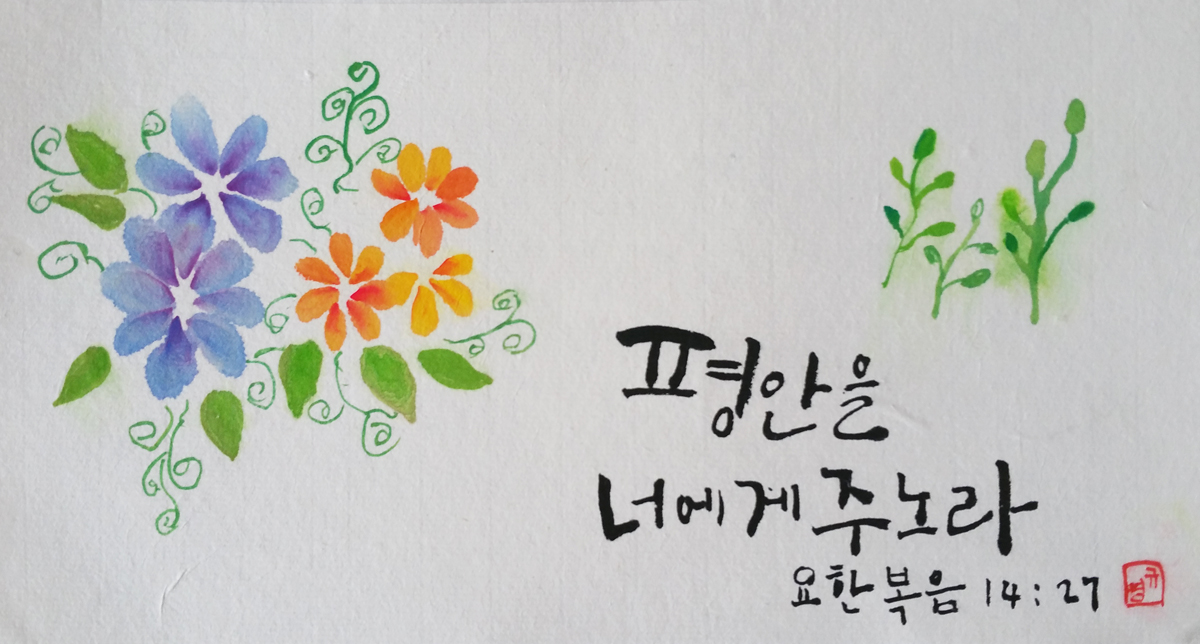 평안을
너에게 주노라
요한복음 14:27